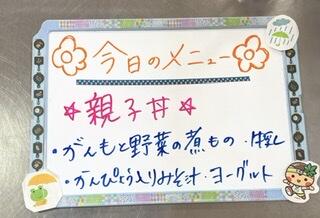 今日のメニュー
☆親子丼☆
・がんもと野菜の煮もの
・かんぴょう入りみそ汁・ヨーグルト